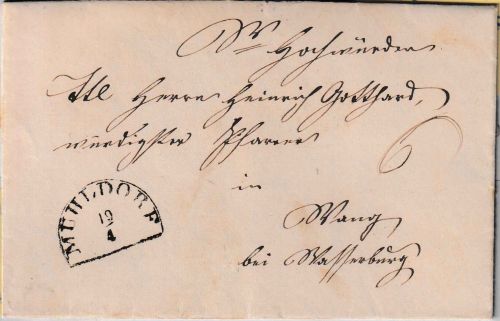 Sr Hochwürden
Ttl Herrn Heinrich Gotthard,
würdigster Pfarrer
6
in
Wang
bei Wasserburg
MÜHLDORF
19
4